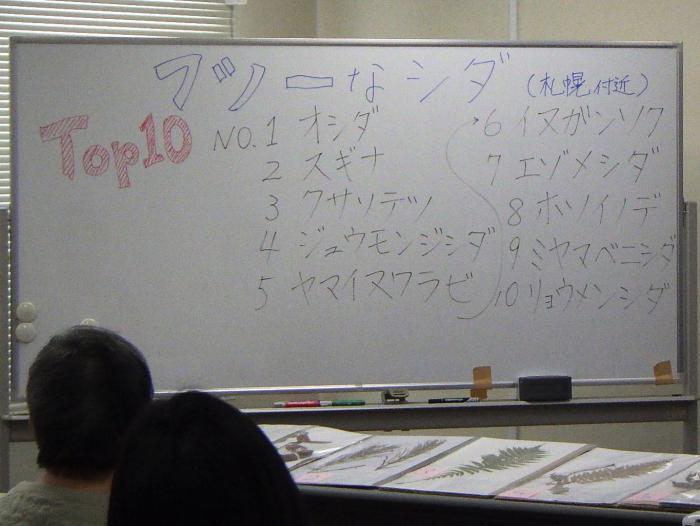 フツーなシダ (札幌付近)
Top10
NO.1 オシダ
2 スギナ
3 クサソテツ
4 ジュウモンジシダ
5 ヤマイヌワラビ
6 イヌガンソク
7 エゾメシダ
8 ホソイノデ
9 ミヤマベニシダ
10 リョウメンシダ